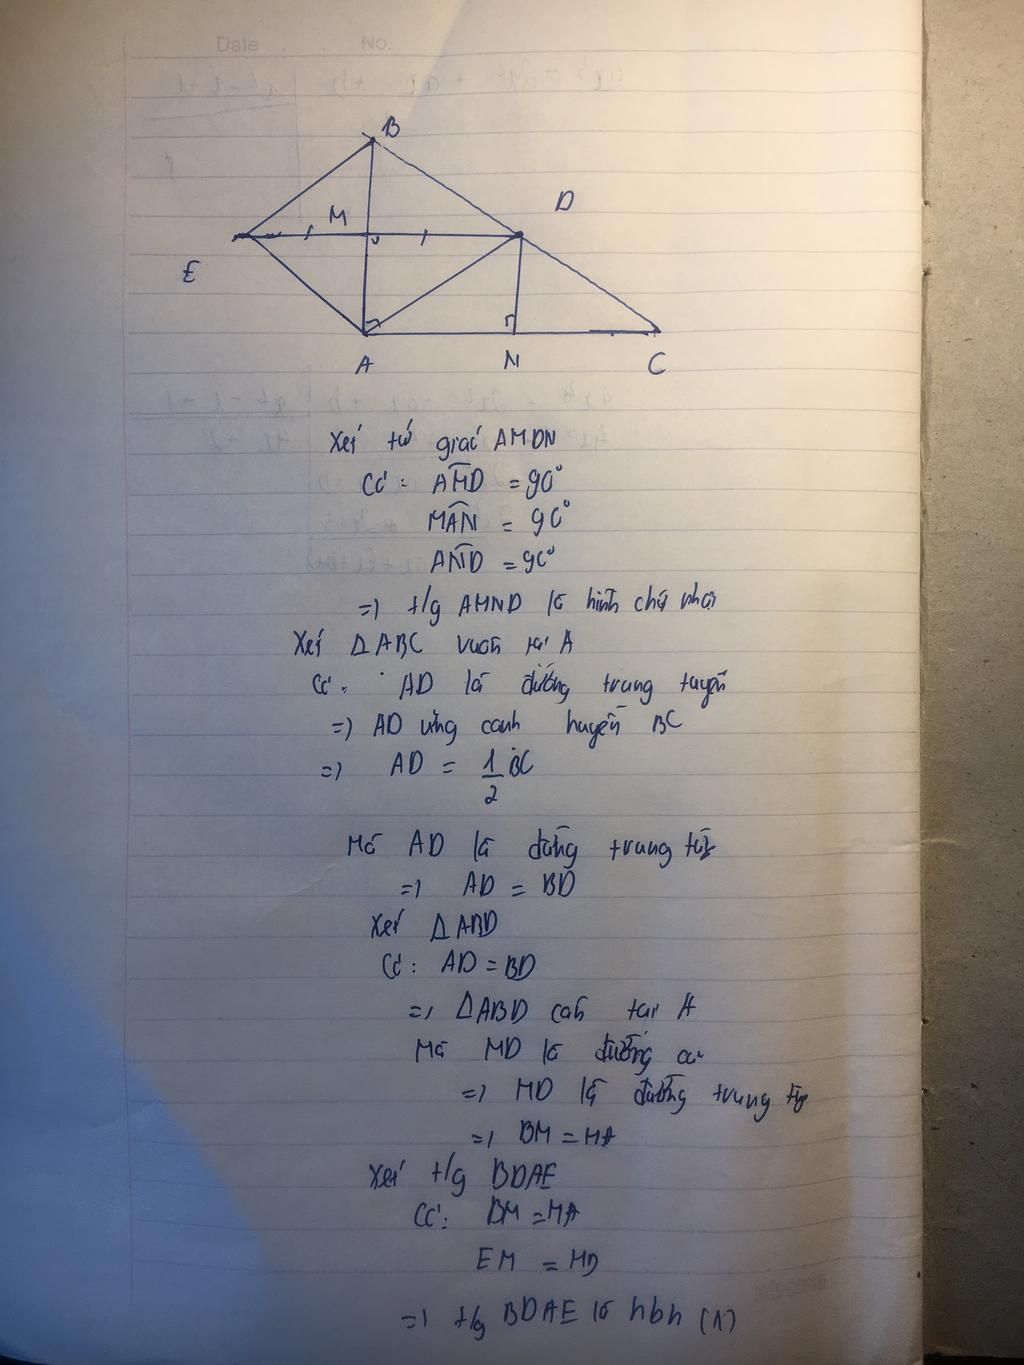 Date No.
B
M
D
E
A
N
C
Xét tứ giác AMDN
Có: AMD = 90°
MAN = 90°
AND = 90°
=) t/g AMND là hình chữ nhật
Xét Δ ABC vuông tại A
Có: AD là đường trung tuyến
=) AD ứng cạnh huyền BC
=) AD = 1/2 BC
Mà AD là đường trung tuyến
=) AD = BD
Xét Δ ABD
Có: AD = BD
=) Δ ABD cân tại A
Mà MD là đường cao
=) MD là đường trung
=) BM = MA
Xét t/g BDAE
Có: BM = MA
EM = MD
=) t/g BDAE là hbh (1)